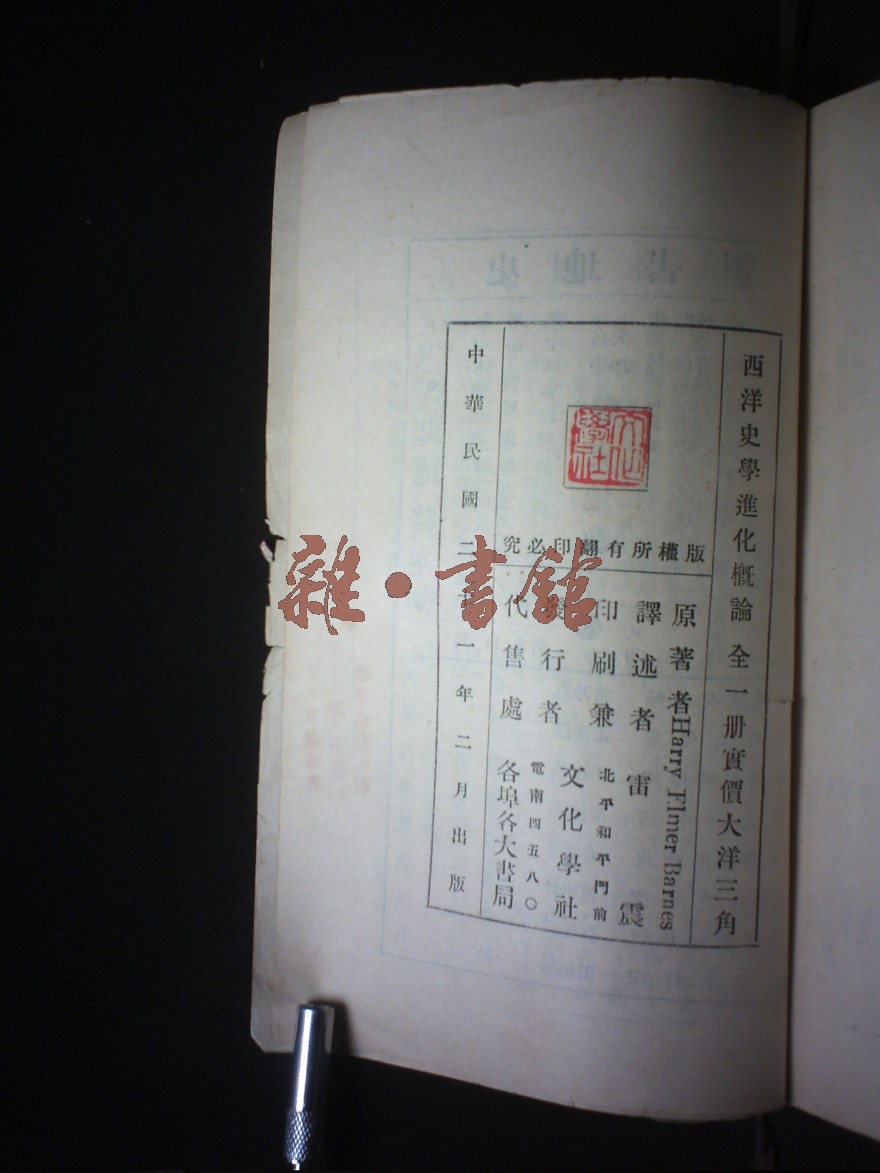 西洋史學進化概論 全一册實價大洋三角
版權所有翻印必究
原著者 Harry Elmer Barnes
譯述者 雷震
印刷兼
發行者
北平和平門前
文化學社
電南四五八〇
代售處 各埠各大書局
中華民國二十一年二月出版
文化學社
雜·書館